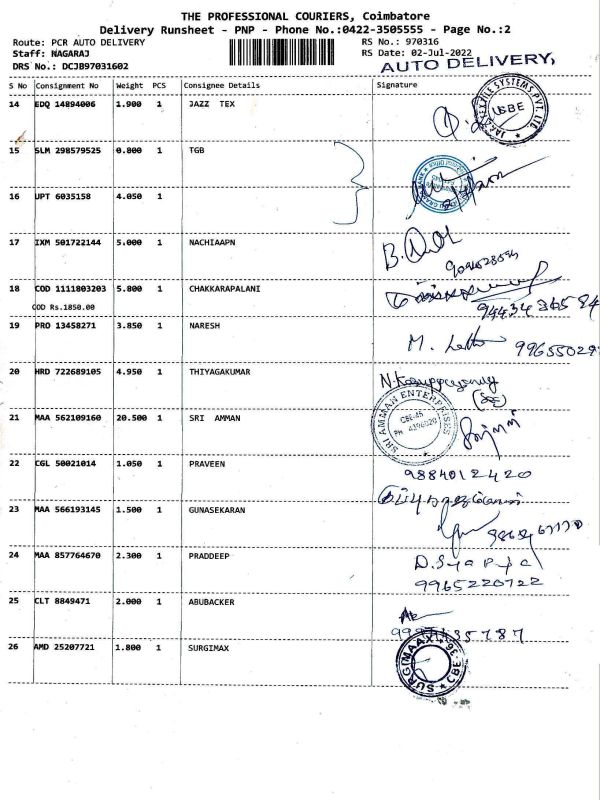 THE PROFESSIONAL COURIERS, Coimbatore
Delivery Runsheet - PNP - Phone No.:0422-3505555 - Page No.:2
Route: PCR AUTO DELIVERY RS No.: 970316
Staff: NAGARAJ RS Date: 02-Jul-2022
DRS No.: DCJB97031602 AUTO DELIVERY,
S No Consignment No Weight PCS Consignee Details Signature
14 EDQ 14894006 1.900 1 JAZZ TEX
15 SLM 298579525 0.800 1 TGB
16 UPT 6035158 4.050 1
17 IXM 501722144 5.000 1 NACHIAAPN
18 COD 1111803203 5.800 1 CHAKKARAPALANI
COD Rs.1850.00
19 PRO 13458271 3.850 1 NARESH
20 HRD 722689105 4.950 1 THIYAGAKUMAR
21 MAA 562109160 20.500 1 SRI AMMAN
SRI AMMAN ENTERPRISES
22 CGL 50021014 1.050 1 PRAVEEN 9884012420
23 MAA 566193145 1.500 1 GUNASEKARAN
24 MAA 857764670 2.300 1 PRADDEEP
9965220722
25 CLT 8849471 2.000 1 ABUBACKER
26 AMD 25207721 1.800 1 SURGIMAX
SURGIMAAX CBE